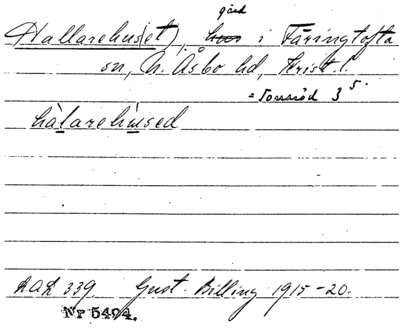 gård
(Hallarehuset), hus i Färingtofta
sn, N. Åsbo hd, Krist. l.
= Torsröd 3⁵.
hàlarehùsed
LAL 339. Gust. Billing 1915-20.
Nr 5494.